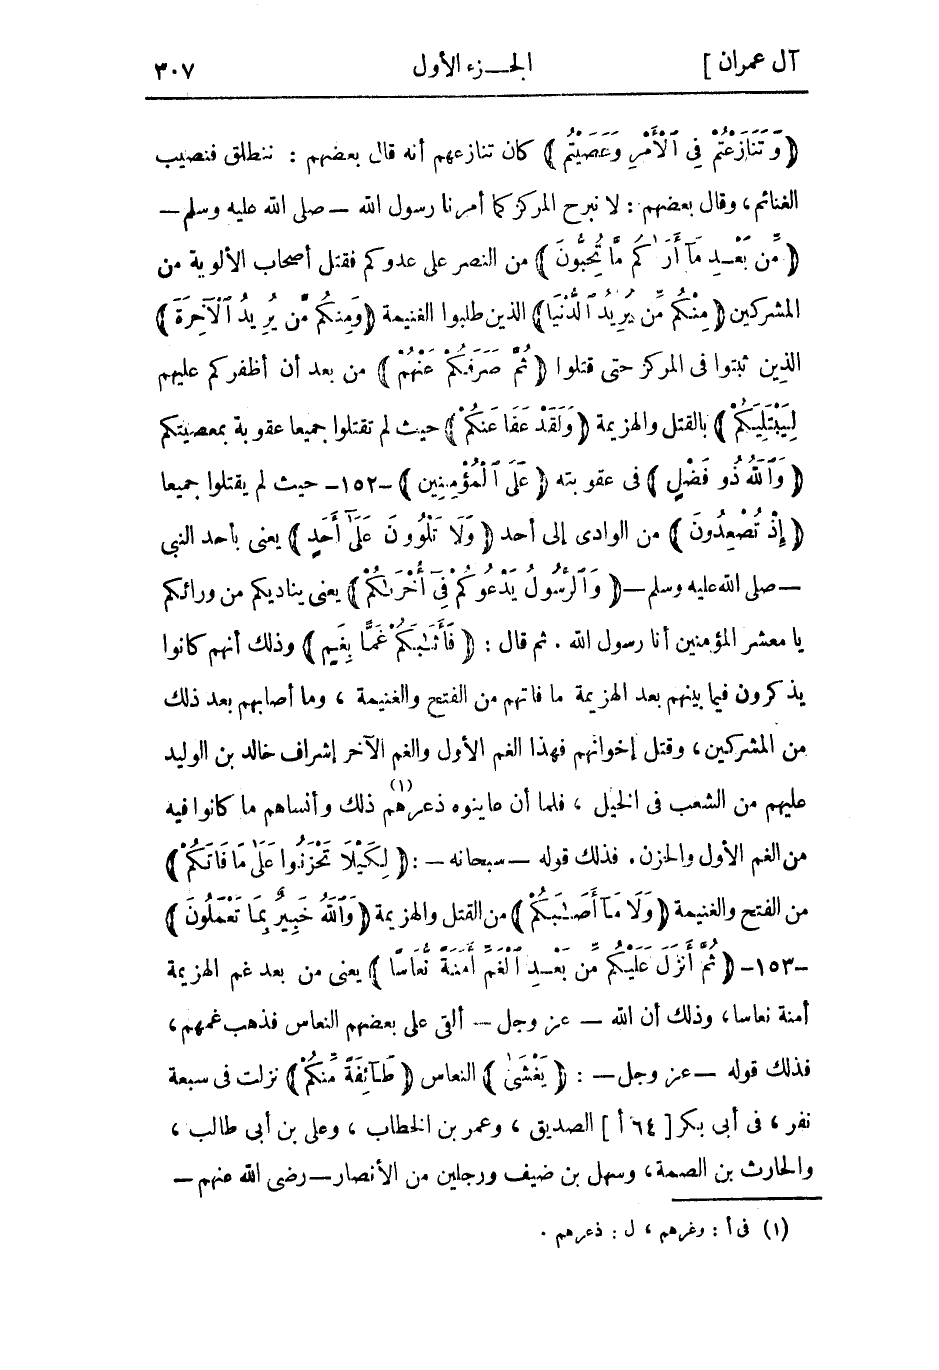 آل عمران ] الجـزء الأول ٣٠٧
﴿ وَتَنَازَعْتُمْ فِى ٱلْأَمْرِ وَعَصَيْتُم ﴾ كان تنازعهم أنه قال بعضهم : ننطلق فنصيب
الغنائم، وقال بعضهم : لا نبرح المركز كما أمرنا رسول الله — صلى الله عليه وسلم —
﴿ مِّن بَعْـدِ مَآ أَرَىٰكُم مَّا تُحِبُّونَ ﴾ من النصر على عدوكم فقتل أصحاب الألوية من
المشركين ﴿ مِنْكُم مَّن يُرِيدُ ٱلدُّنْيَا﴾ الذين طلبوا الغنيمة ﴿وَمِنكُم مَّن يُرِيدُ ٱلْآخِرَةَ ﴾
الذين ثبتوا فى المركز حتى قتلوا ﴿ ثُمَّ صَرَفَكُمْ عَنْهُمْ ﴾ من بعد أن أظفركم عليهم
لِيَبْتَلِيَكُمْ ﴾ بالقتل والهزيمة ﴿ وَلَقَدْ عَفَا عَنكُمْ ﴾ حيث لم تقتلوا جميعا عقوبة بمعصيتكم
﴿ وَٱللَّهُ ذُو فَضْلٍ ﴾ فى عقوبته ﴿ عَلَى ٱلْمُؤْمِنِين ﴾ -١٥٢- حيث لم يقتلوا جميعا
﴿ إِذْ تُصْعِدُونَ ﴾ من الوادى إلى أحد ﴿ وَلَا تَلْوُونَ عَلَىٰٓ أَحَدٍ ﴾ يعنى بأحد النبى
— صلى الله عليه وسلم — ﴿ وَٱلرَّسُولُ يَدْعُوكُمْ فِىٓ أُخْرَىٰكُمْ ﴾ يعنى يناديكم من ورائكم
يا معشر المؤمنين أنا رسول الله . ثم قال : ﴿ فَأَثَـٰبَكُمْ غَمًّا بِغَمٍ ﴾ وذلك أنهم كانوا
يذكرون فيما بينهم بعد الهزيمة ما فاتهم من الفتح والغنيمة ، وما أصابهم بعد ذلك
من المشركين، وقتل إخوانهم فهذا الغم الأول والغم الآخر إشراف خالد بن الوليد
عليهم من الشعب فى الخيل ، فلما أن عاينوه ذعرهم (١) ذلك وأنساهم ما كانوا فيه
من الغم الأول والحزن. فذلك قوله — سبحانه — : ﴿ لِكَيْلَا تَحْزَنُوا عَلَىٰ مَا فَاتَكُمْ ﴾
من الفتح والغنيمة ﴿ وَلَا مَآ أَصَـٰبَكُمْ ﴾ من القتل والهزيمة ﴿ وَٱللَّهُ خَبِيرٌ بِمَا تَعْمَلُونَ ﴾
-١٥٣- ﴿ ثُمَّ أَنزَلَ عَلَيْكُم مِّن بَعْـدِ ٱلْغَمِّ أَمَنَةً نُّعَاسًا ﴾ يعنى من بعد غم الهزيمة
أمنة نعاسا، وذلك أن الله — عز وجل — ألقى على بعضهم النعاس فذهب غمهم،
فذلك قوله — عز وجل — : ﴿ يَغْشَىٰ ﴾ النعاس ﴿ طَـآئِفَةً مِّنكُمْ ﴾ نزلت فى سبعة
نفر ، فى أبى بكر [ ٦٤ أ ] الصديق ، وعمر بن الخطاب ، وعلى بن أبى طالب ،
والحارث بن الصمة، وسهل بن ضيف ورجلين من الأنصار — رضى الله عنهم —
(١) فى أ : وغرهم ، ل : ذعرهم .